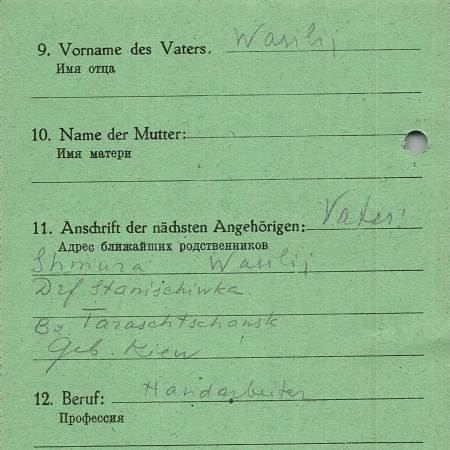 9. Vorname des Vaters. Wasilij
Имя отца
10. Name der Mutter:
Имя матери
11. Anschrift der nächsten Angehörigen: Vater:
Адрес ближайших родственников
Shmura Wasilij
Drf Stanischiwka
Bz. Taraschtschansk
Geb. Kiew
12. Beruf: Handarbeiter
Профессия